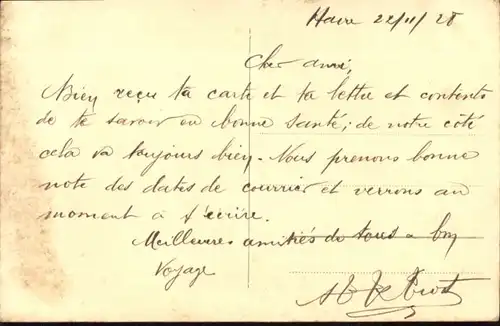 Havre 22/11/28
Cher ami,
Bien reçu ta carte et ta lettre et contents
de te savoir en bonne santé; de notre côté
cela va toujours bien. Nous prenons bonne
note des dates de courrier et verrons au
moment à t'écrire.
Meilleures amitiés de tous & bon
Voyage